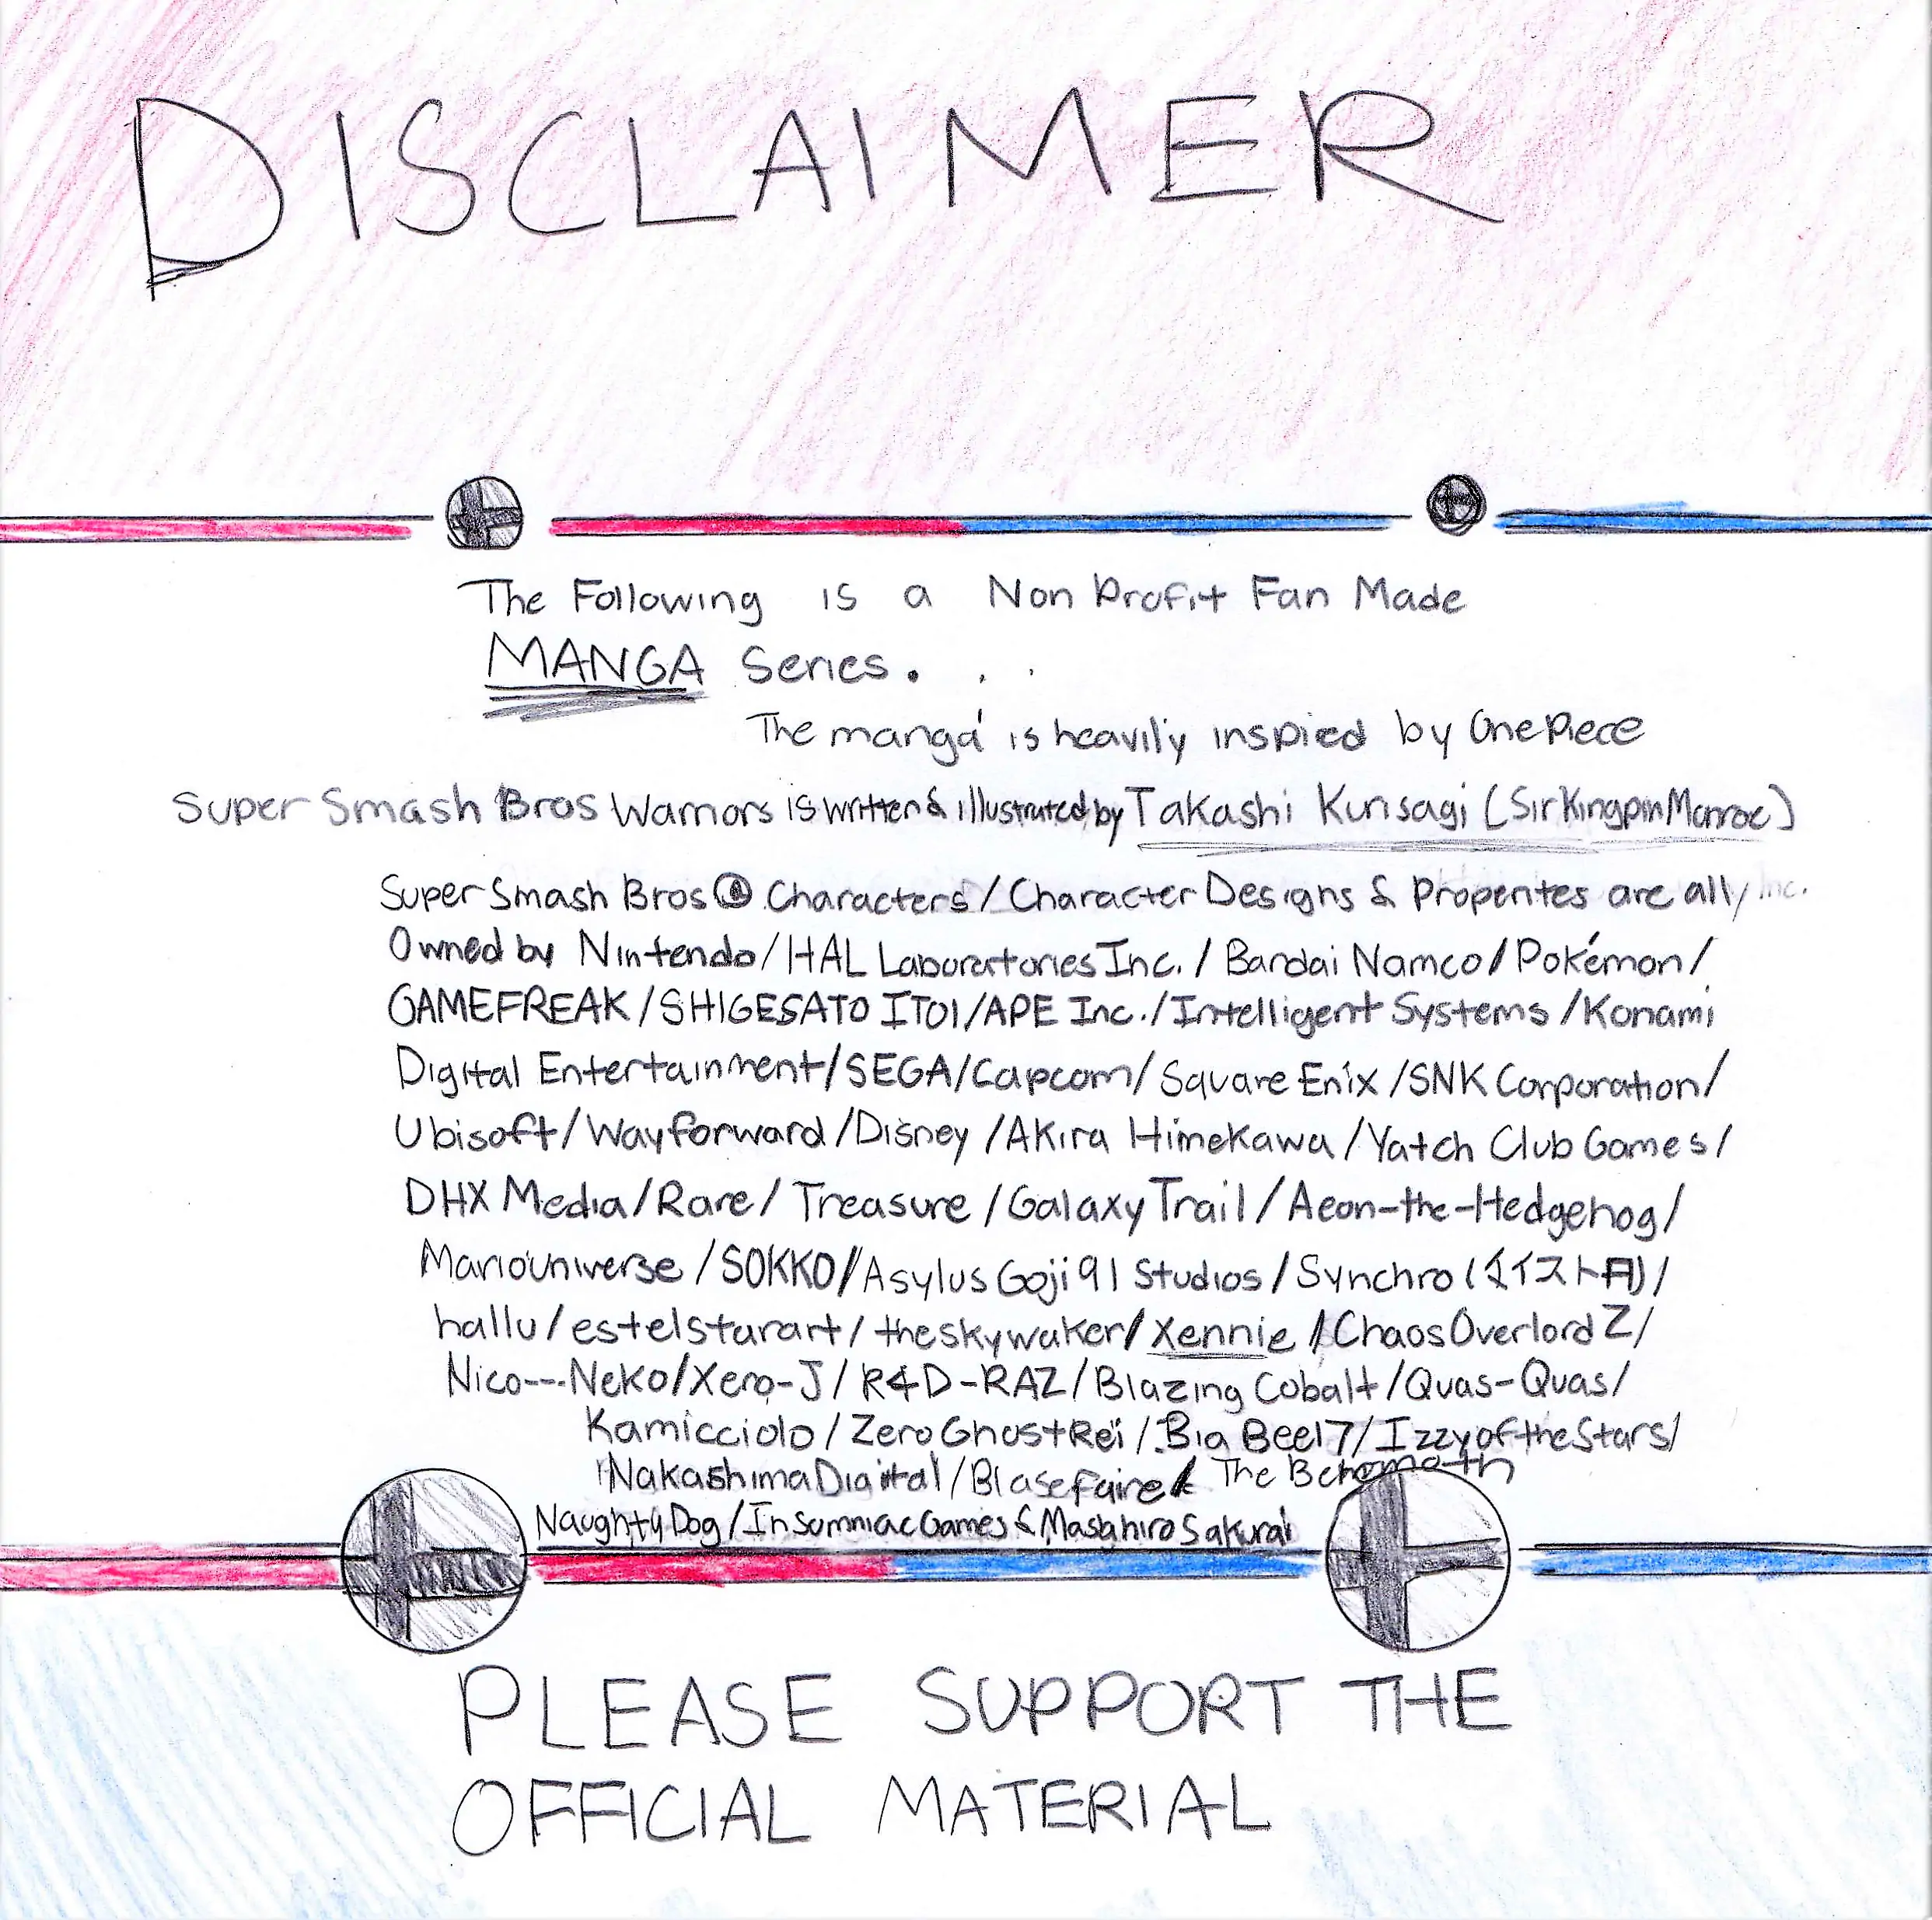 DISCLAIMER
The Following is a Non Profit Fan Made
MANGA Series. . .
The manga is heavily inspied by One Piece
Super Smash Bros Warriors is written & illustrated by Takashi Kurisagi (SirKingpinMonroe)
Super Smash Bros ® Characters / Character Designs & Properites are all Inc.
Owned by Nintendo / HAL Laboratories Inc. / Bandai Namco / Pokémon /
GAMEFREAK / SHIGESATO ITOI / APE Inc. / Intelligent Systems / Konami
Digital Entertainment / SEGA / Capcom / Square Enix / SNK Corporation /
Ubisoft / Wayforward / Disney / Akira Himekawa / Yatch Club Games /
DHX Media / Rare / Treasure / Galaxy Trail / Aeon-the-Hedgehog /
Mariouniverse / SOKKO / Asylus Goji91 Studios / Synchro (イスト月) /
hallu / estelstarart / theskywaker / Xennie / ChaosOverlordZ /
Nico---Neko / Xero-J / R4D-RAZ / Blazing Cobalt / Quas-Quas /
Kamicciolo / ZeroGhostRei / Big Beel7 / IzzyoftheStars /
NakashimaDigital / Blasefaire / The Behemoth
Naughty Dog / Insomniac Games & Masahiro Sakurai
PLEASE SUPPORT THE
OFFICIAL MATERIAL